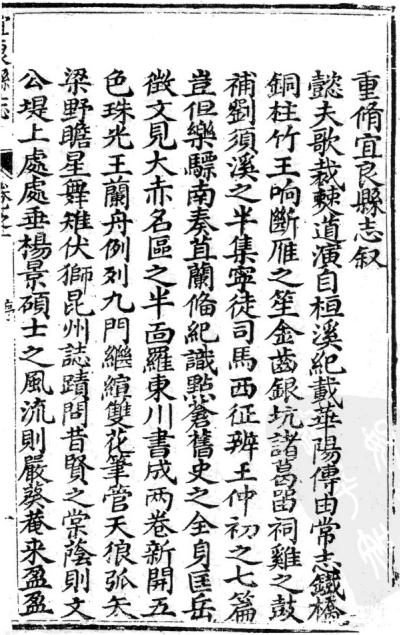 重脩宜良縣志叙
懿夫歌裁棘道演自桓溪紀載華陽傳由常志鐵橋
銅柱竹王响斷雁之笙金齒銀坑諸葛畱祠雞之鼓
補劉須溪之半集寧徒司馬西征辨王仲初之七篇
豈但樂驃南奏苴蘭脩紀識點蒼舊史之全身匡岳
徴文見大赤名區之半面羅東川書成两卷新開五
色珠光王蘭舟例列九門繼縯雙花筆管天狼弧矢
梁野瞻星舞雉伏獅昆州誌蹟問昔賢之棠蔭則文
公堤上處處垂楊景碩士之風流則嚴葵菴来盈盈
宜良縣志
卷之一
序